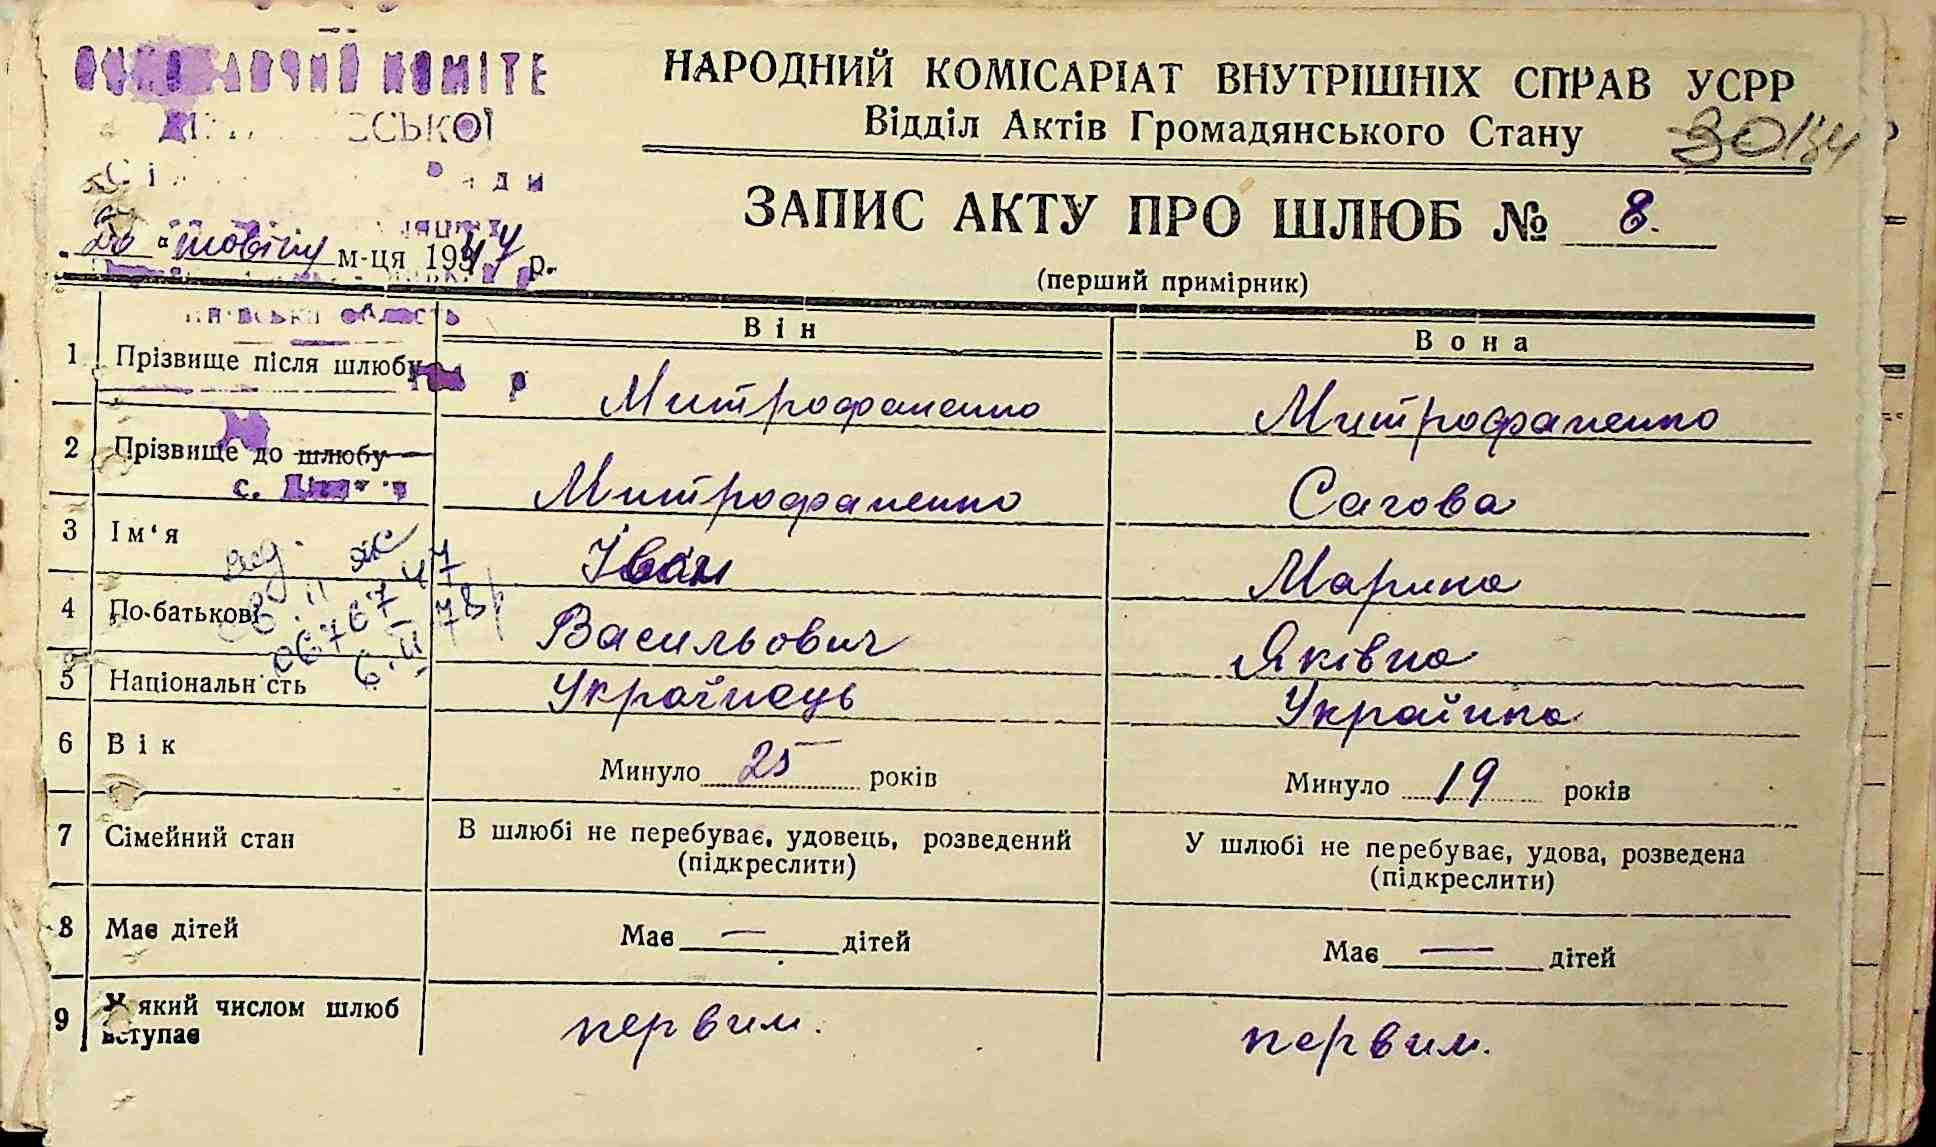 НАРОДНИЙ КОМІСАРІАТ ВНУТРІШНІХ СПРАВ УСРР
Відділ Актів Громадянського Стану
30/84
ЗАПИС АКТУ ПРО ШЛЮБ № 8.
(перший примірник)
м-ця 1944 р.
область
Він
Вона
1 Прізвище після шлюбу Митрофаненко Митрофаненко
2 Прізвище до шлюбу Митрофаненко Сагова
с.
3 Ім'я Іван Марина
4 По-батькові Васильович Яківна
5 Національність Українець Українка
6 Вік Минуло 25 років Минуло 19 років
7 Сімейний стан В шлюбі не перебуває, удовець, розведений (підкреслити) У шлюбі не перебуває, удова, розведена (підкреслити)
8 Має дітей Має — дітей Має — дітей
9 який числом шлюб вступає первим. первим.